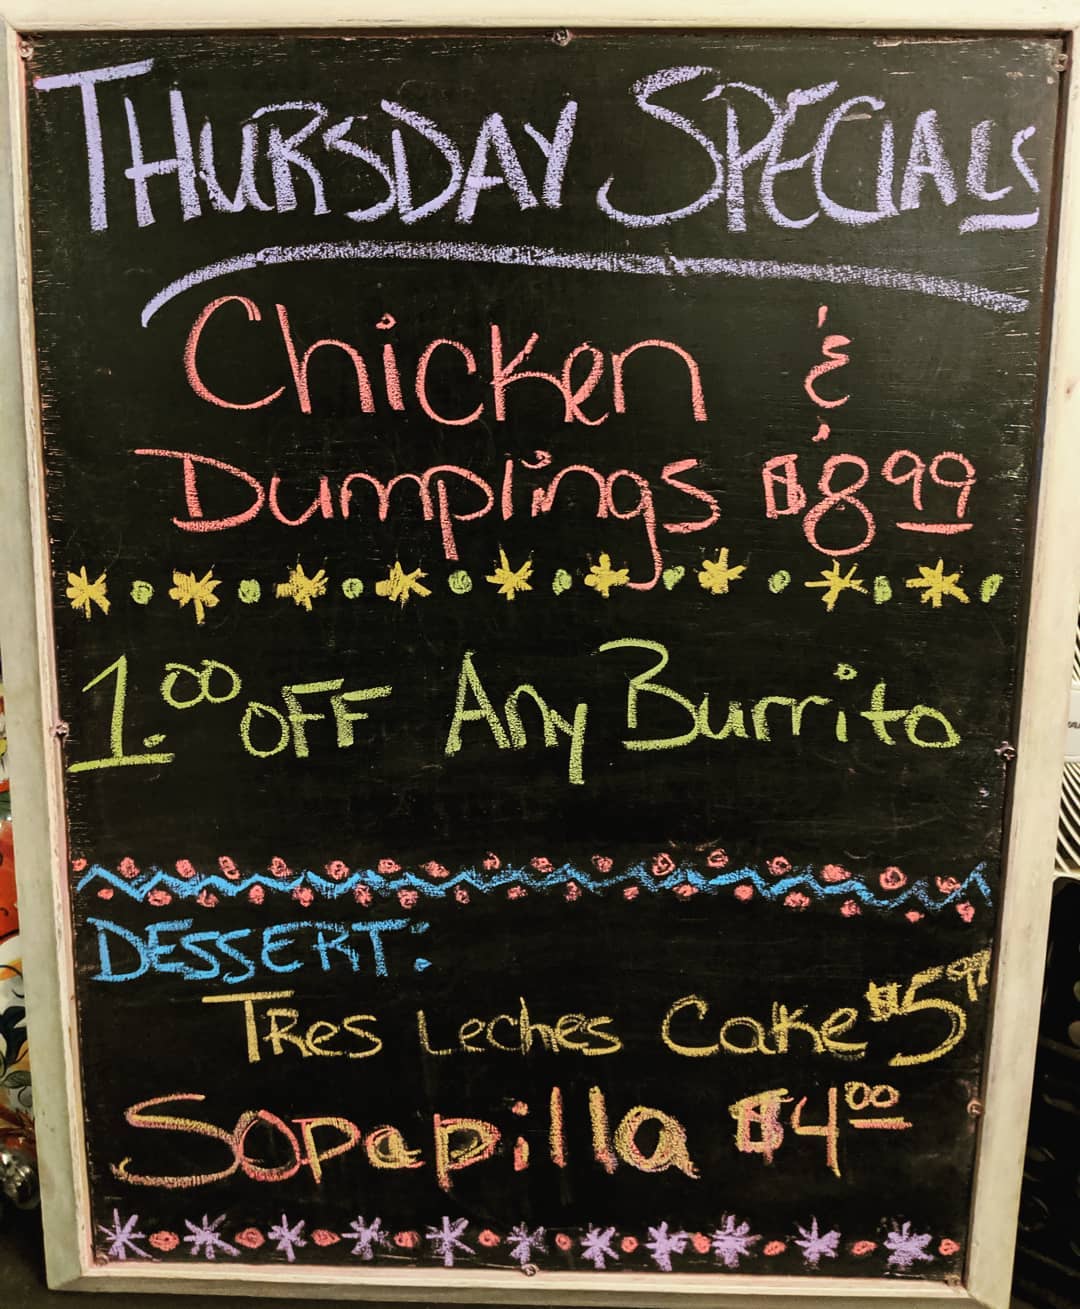 THURSDAY SPECIALS
Chicken &
Dumplings $8.99
1.00 OFF Any Burrito
DESSERT:
Tres Leches Cake $5
Sopapilla $4.00